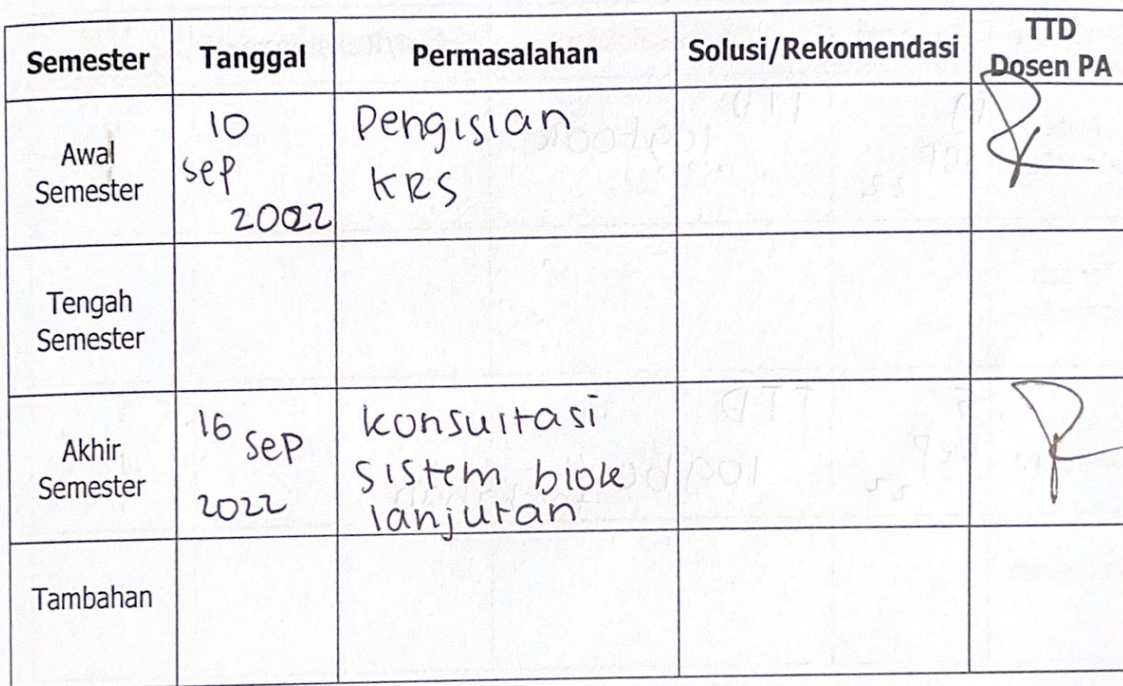 Semester Tanggal Permasalahan Solusi/Rekomendasi TTD
Dosen PA
Awal
Semester
10
Sep
2022
Pengisian
KRS
Tengah
Semester
Akhir
Semester
16 Sep
2022
Konsultasi
sistem blok
lanjutan
Tambahan